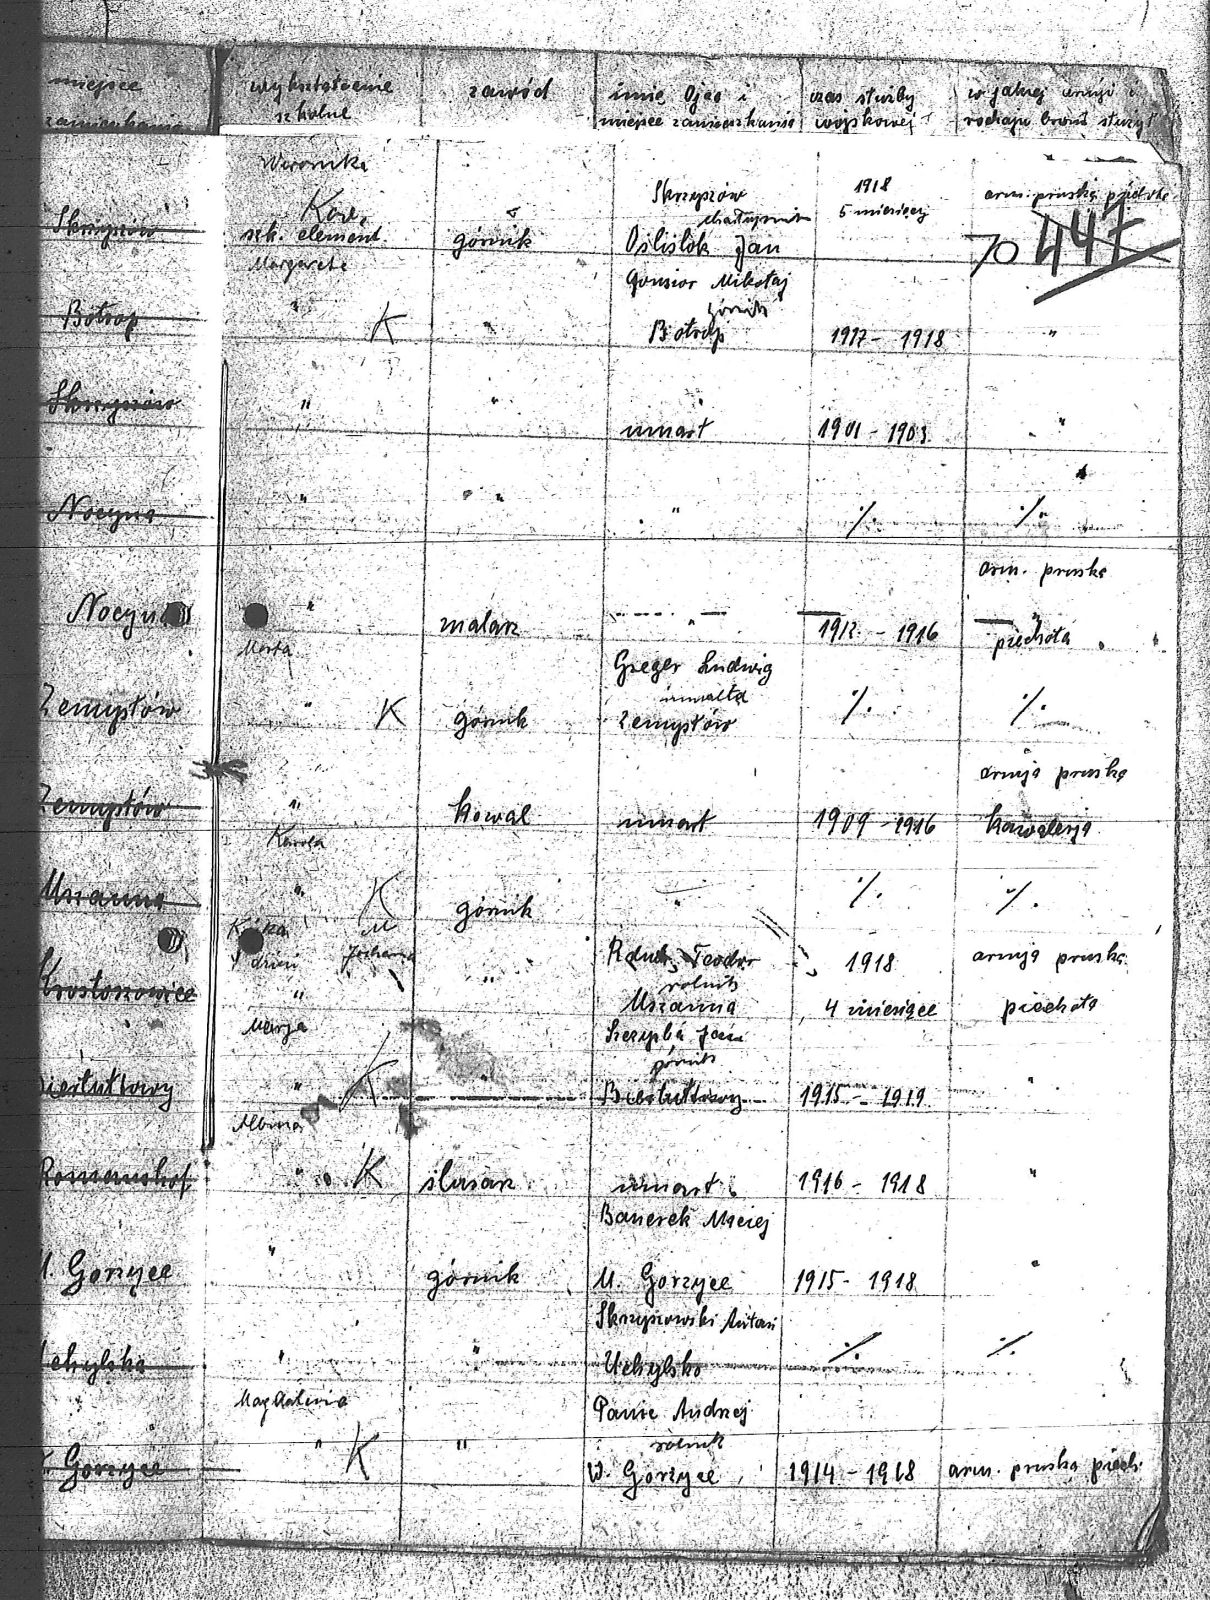 miejsce wykształcenie zawód imię Ojca i czas służby w jakiej armji i
zamieszkania szkolne miejsce zamieszkania wojskowej rodzaju broni służył
Weronika
Skrzyszów 1918 arm. pruska piechota
chałupnik 5 miesięcy
Skrzyszów szk. element. górnik Oślislok Jan 70 447
Margareta
Gonsior Mikołaj
górnik
Botrop " K " Botrop 1917 - 1918 "
Skrzyszów " " umarł 1901 - 1903 "
Nocyna " " " ·/. ·/.
arm. pruska
Nocyna " malarz " 1912 - 1916 piechota
Marta
Greger Ludwig
Zemysłów " K górnik Zemysłów ·/. ·/.
armja pruska
Zemysłów " kowal umarł 1909 - 1916 kawalerja
Karola
Mszanna " K górnik " ·/. ·/.
M
Johanna Teodor 1918 armja pruska
rolnik
Krostoszowice " " Mszanna 4 miesiące piechota
Marja
Szczyrba Jan
górnik
Biertułtowy " K " Biertułtowy 1915 - 1919 "
Albina
Romanshof " K ślusarz umarł 1916 - 1918 "
Banerek Maciej
M. Gorzyce " górnik M. Gorzyce 1915 - 1918 "
Skrzyszowski Antoni
Uchylsko " " Uchylsko ·/. ·/.
Magdalenia Panic Andrzej
rolnik
W. Gorzyce " K " W. Gorzyce 1914 - 1918 arm. pruska piech.